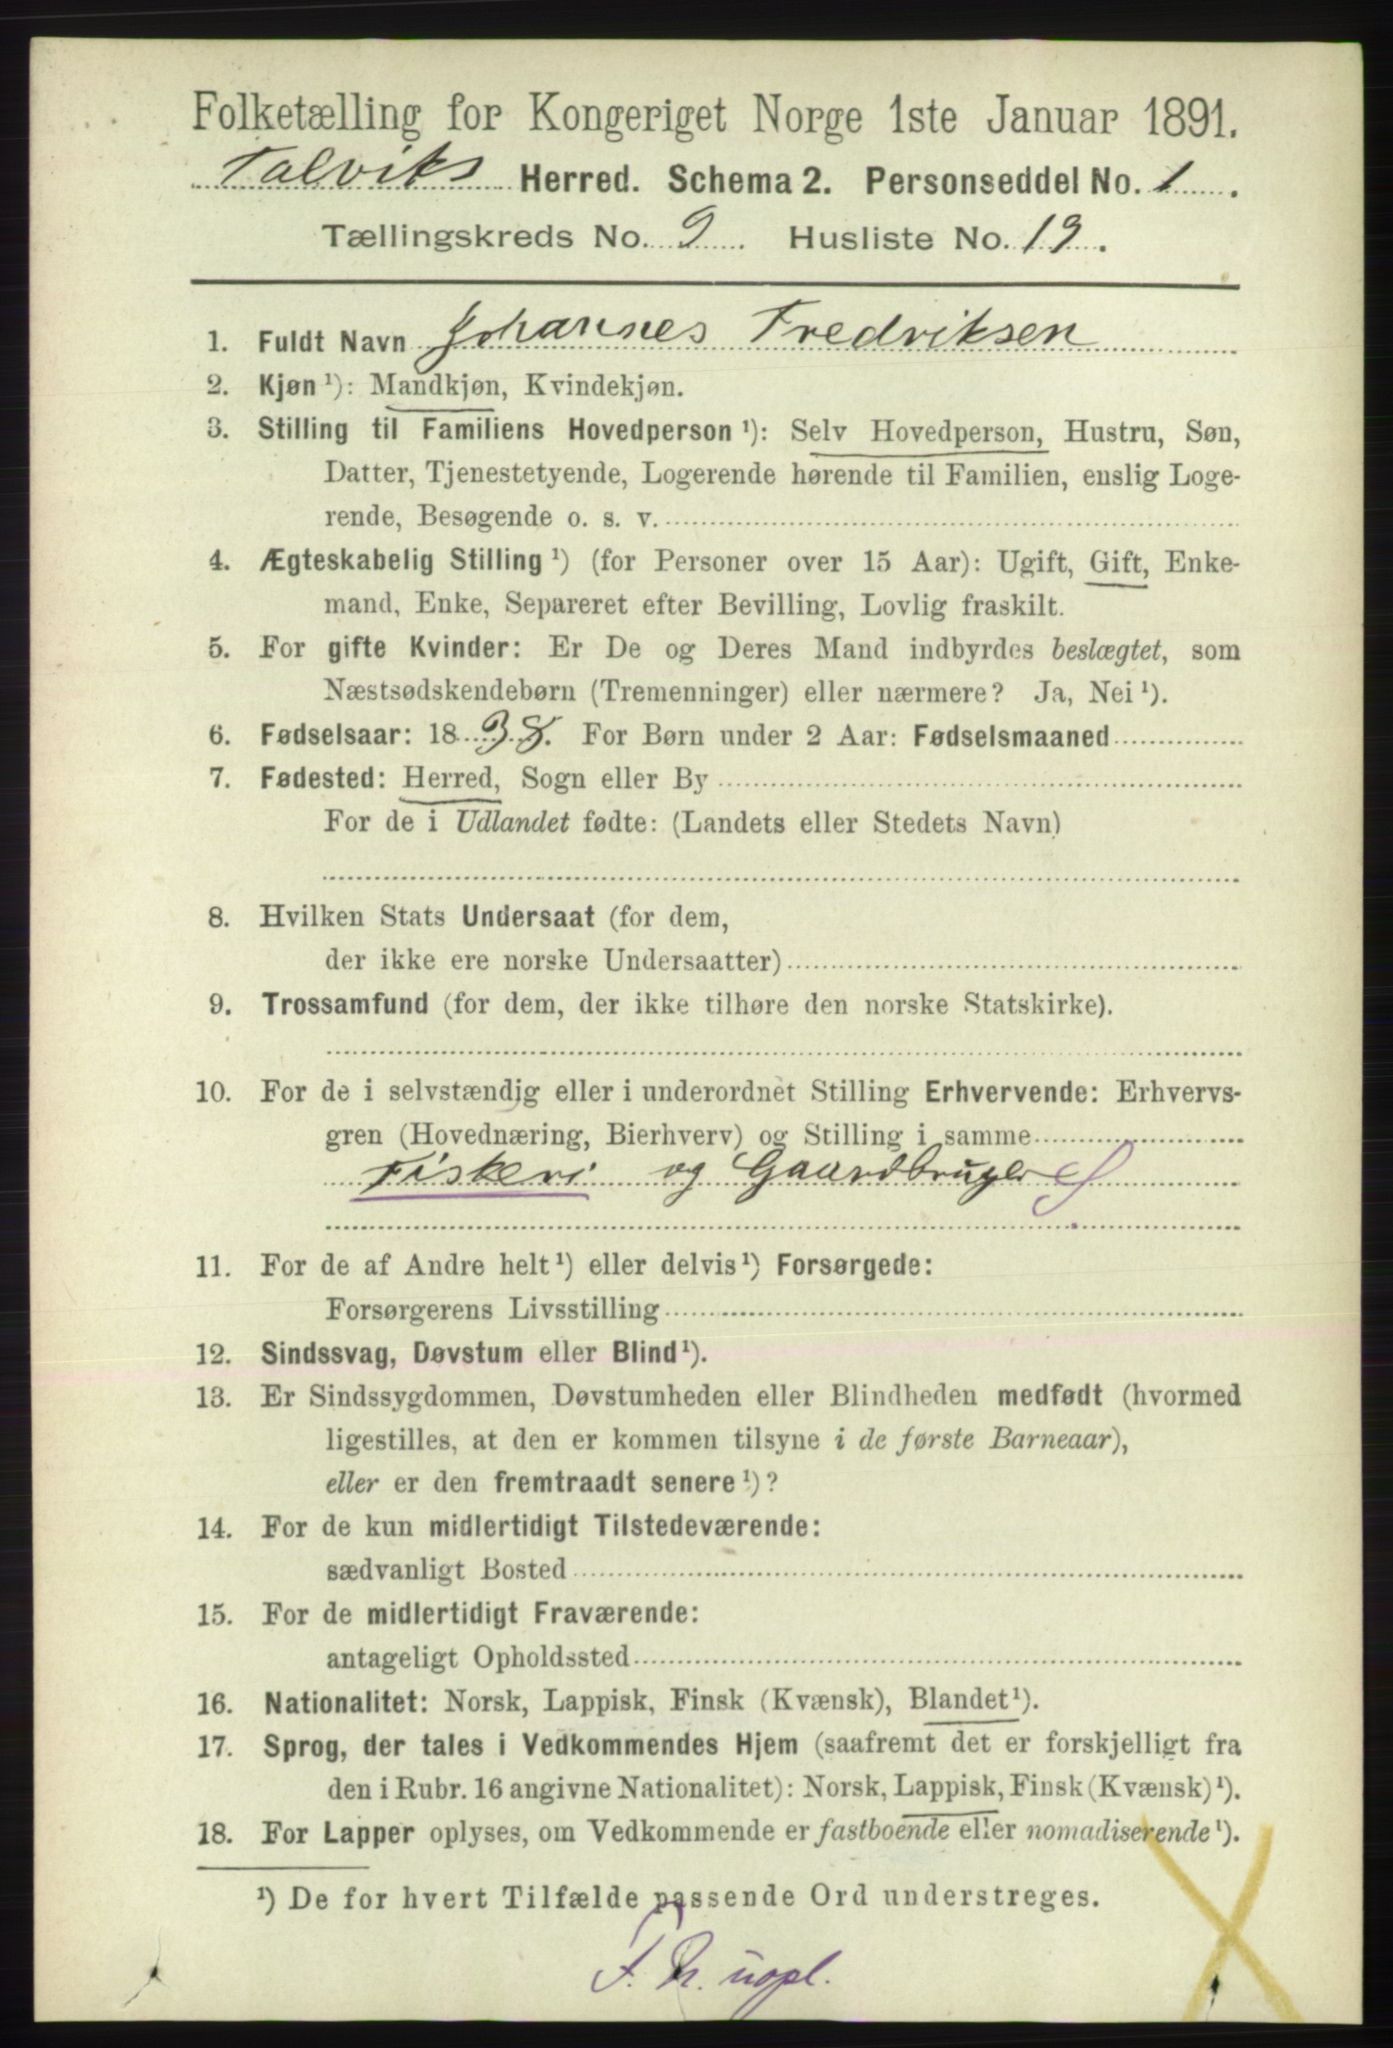 Folketælling for Kongeriget Norge 1ste Januar 1891.
Talviks Herred. Schema 2. Personseddel No. 1.
Tællingskreds No. 9. Husliste No. 19.
1. Fuldt Navn Johannes Fredriksen
2. Kjøn ¹): Mandkjøn, Kvindekjøn.
3. Stilling til Familiens Hovedperson ¹): Selv Hovedperson, Hustru, Søn,
Datter, Tjenestetyende, Logerende hørende til Familien, enslig Loge-
rende, Besøgende o. s. v.
4. Ægteskabelig Stilling ¹) (for Personer over 15 Aar): Ugift, Gift, Enke-
mand, Enke, Separeret efter Bevilling, Lovlig fraskilt.
5. For gifte Kvinder: Er De og Deres Mand indbyrdes beslægtet, som
Næstsødskendebørn (Tremenninger) eller nærmere? Ja, Nei ¹).
6. Fødselsaar: 1838. For Børn under 2 Aar: Fødselsmaaned
7. Fødested: Herred, Sogn eller By
For de i Udlandet fødte: (Landets eller Stedets Navn)
8. Hvilken Stats Undersaat (for dem,
der ikke ere norske Undersaatter)
9. Trossamfund (for dem, der ikke tilhøre den norske Statskirke).
10. For de i selvstændig eller i underordnet Stilling Erhvervende: Erhvervs-
gren (Hovednæring, Bierhverv) og Stilling i samme
Fiskeri og Gaardbruger S
11. For de af Andre helt ¹) eller delvis ¹) Forsørgede:
Forsørgerens Livsstilling
12. Sindssvag, Døvstum eller Blind ¹).
13. Er Sindssygdommen, Døvstumheden eller Blindheden medfødt (hvormed
ligestilles, at den er kommen tilsyne i de første Barneaar),
eller er den fremtraadt senere ¹)?
14. For de kun midlertidigt Tilstedeværende:
sædvanligt Bosted
15. For de midlertidigt Fraværende:
antageligt Opholdssted
16. Nationalitet: Norsk, Lappisk, Finsk (Kvænsk), Blandet ¹).
17. Sprog, der tales i Vedkommendes Hjem (saafremt det er forskjelligt fra
den i Rubr. 16 angivne Nationalitet): Norsk, Lappisk, Finsk (Kvænsk) ¹).
18. For Lapper oplyses, om Vedkommende er fastboende eller nomadiserende ¹).
¹) De for hvert Tilfælde passende Ord understreges.
uopl.